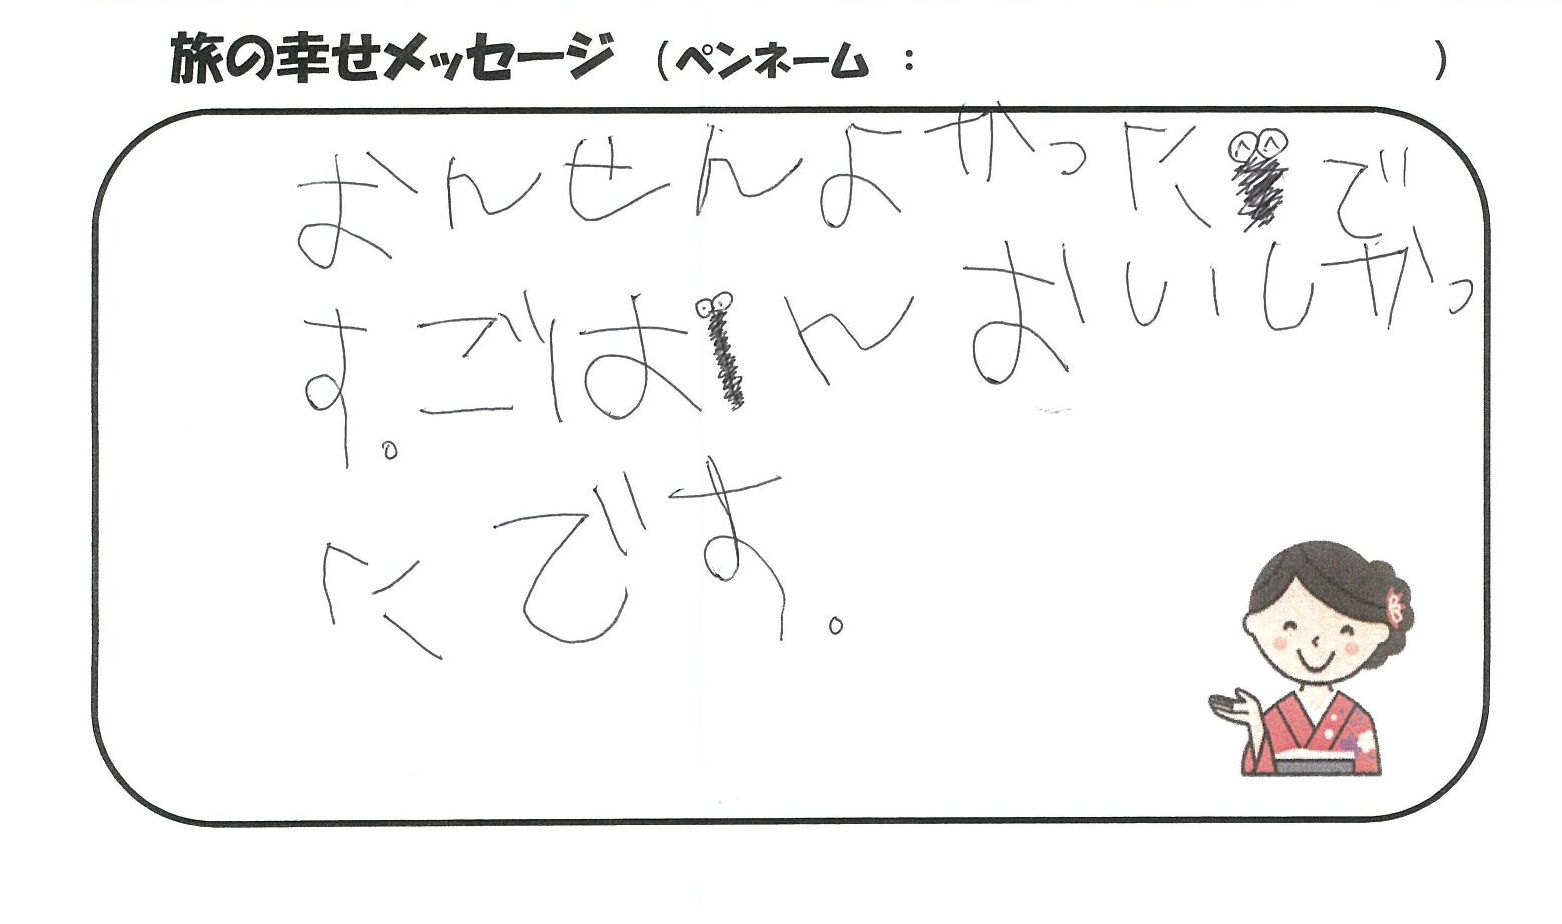 旅の幸せメッセージ （ペンネーム ： ）
おんせんよかったで
す。ごはんおいしかっ
たです。